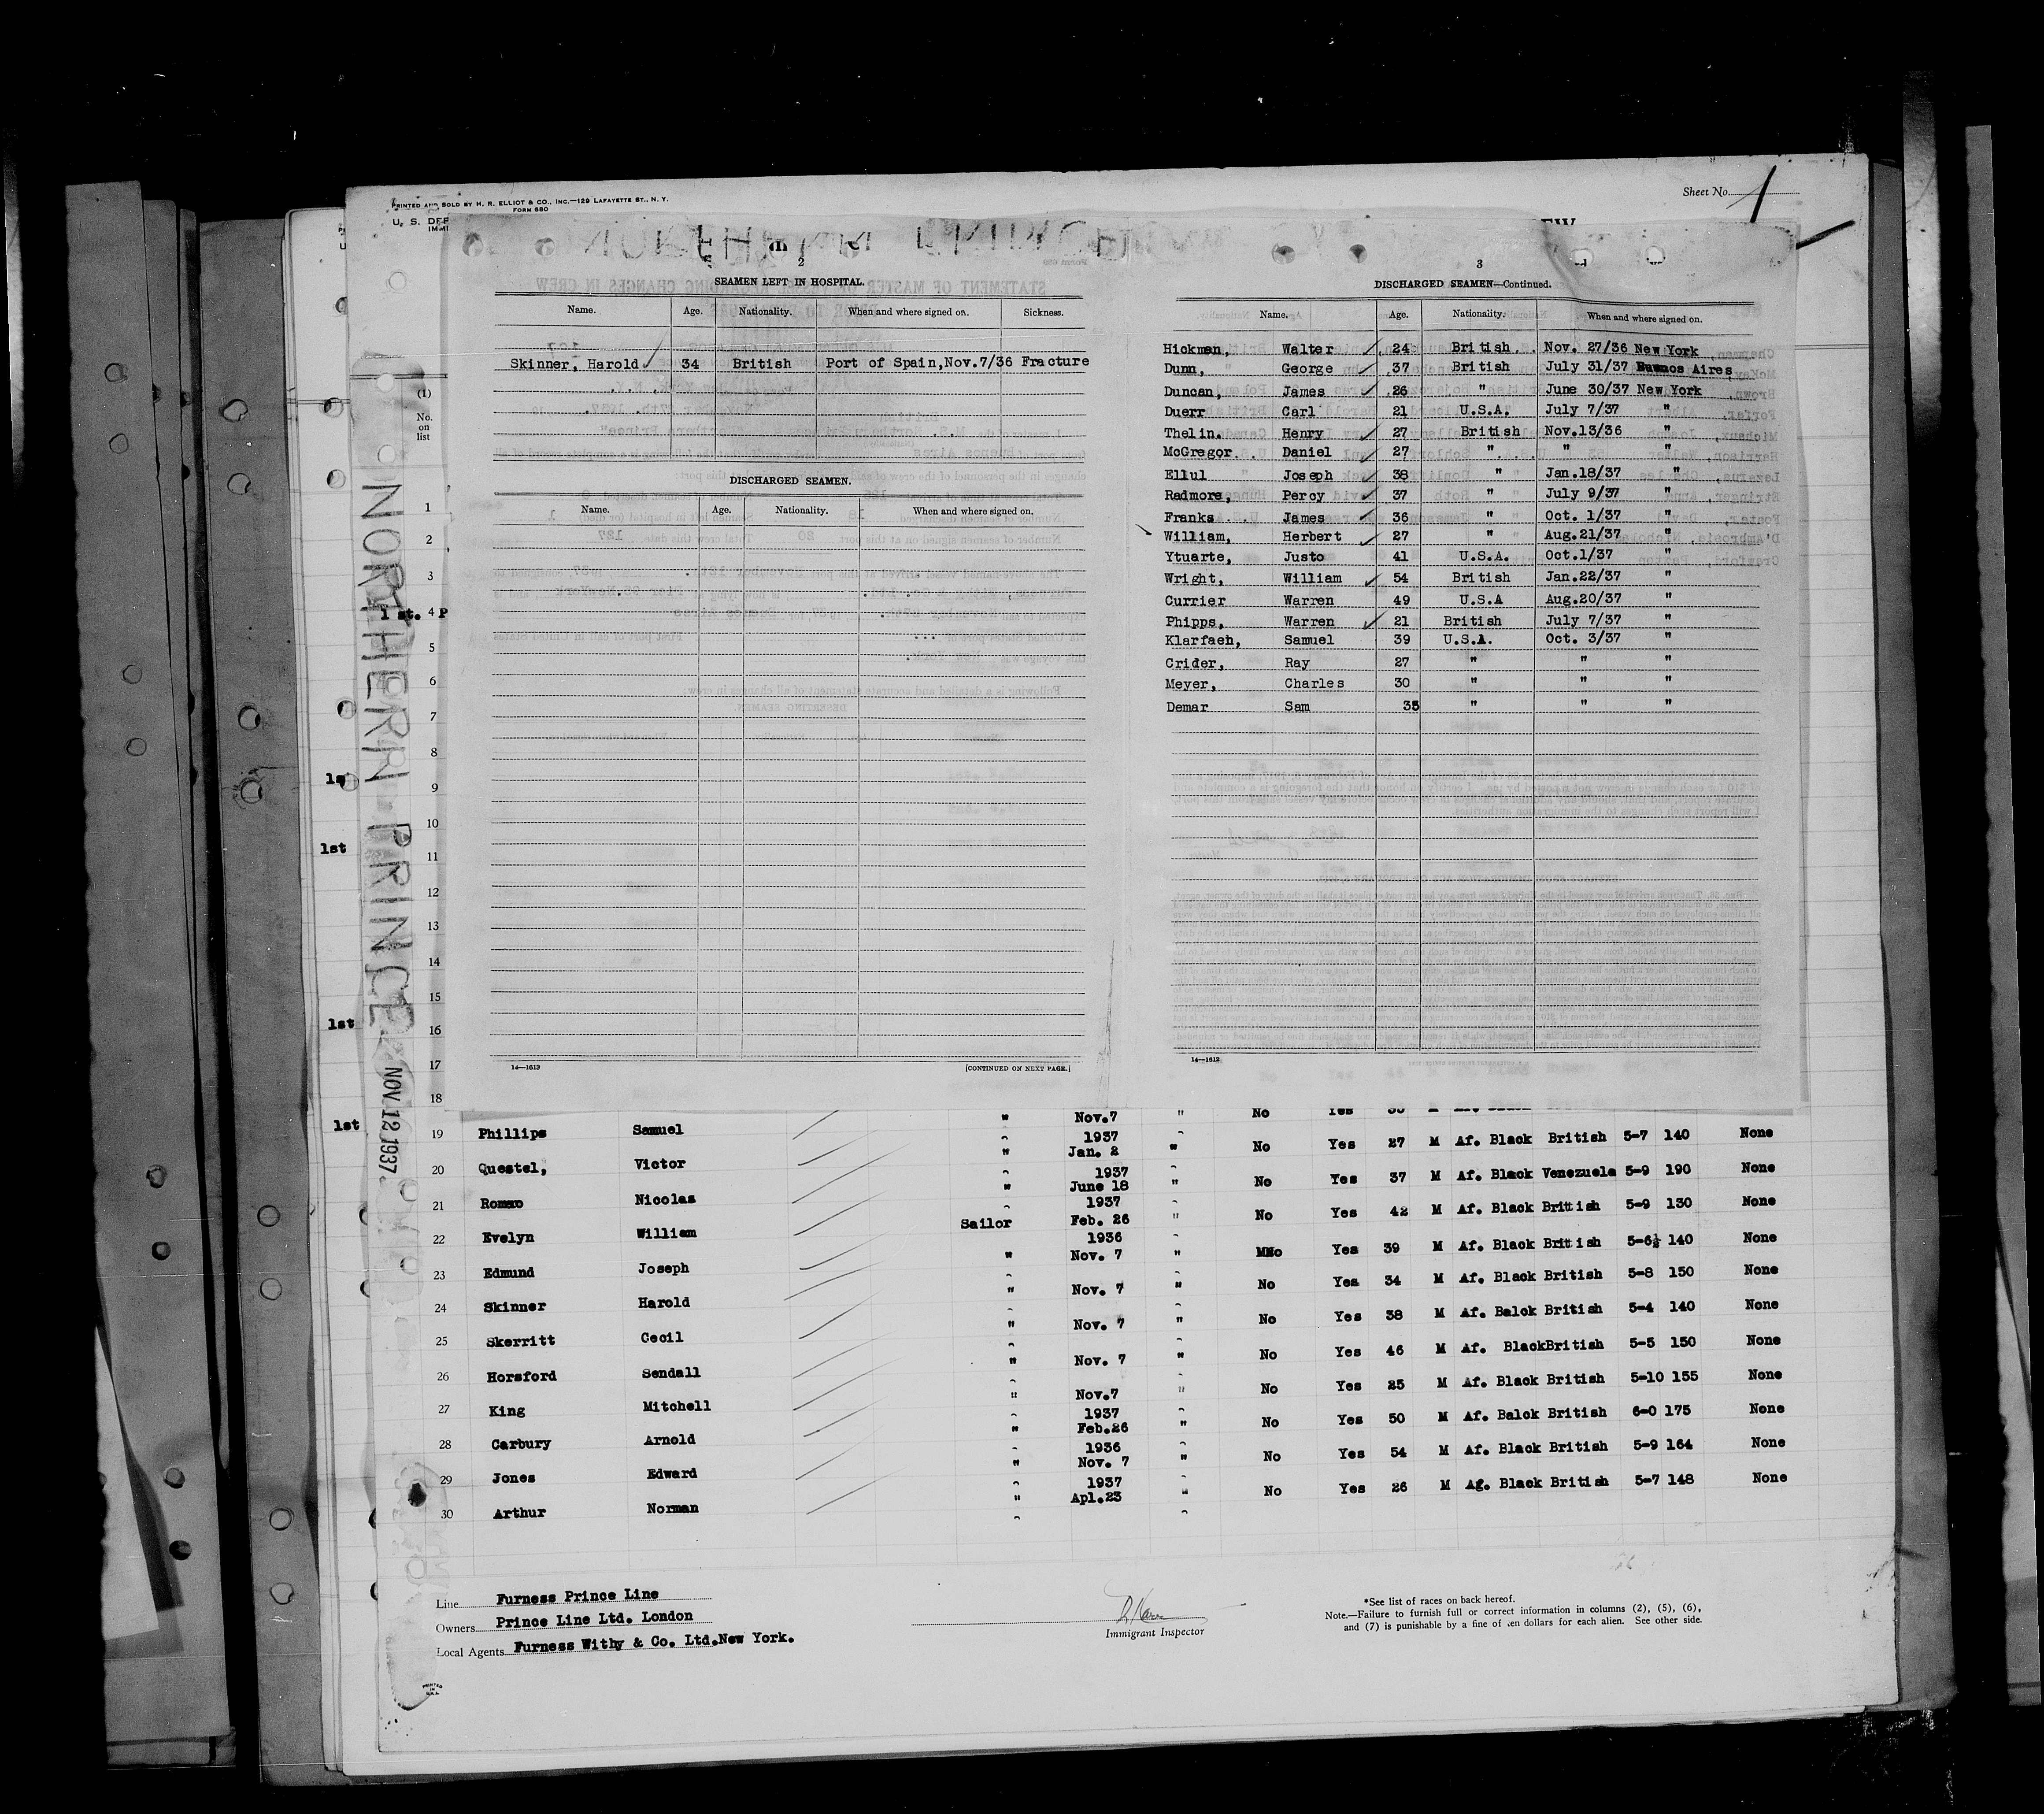 PRINTED AND SOLD BY H. R. ELLIOT & CO., INC.—129 LAFAYETTE ST., N. Y.
FORM 680
Sheet No. 1
U. S. DEP
IMMI
NORTHERN PRINCE
2
SEAMEN LEFT IN HOSPITAL.
Name. Age. Nationality. When and where signed on. Sickness.
Skinner, Harold 34 British Port of Spain,Nov.7/36 Fracture
DISCHARGED SEAMEN.
Name. Age. Nationality. When and where signed on.
14—1613 [CONTINUED ON NEXT PAGE.]
3
DISCHARGED SEAMEN—Continued.
Name. Age. Nationality. When and where signed on.
Hickman, Walter 24 British Nov. 27/36 New York
Dunn, George 37 British July 31/37 Buenos Aires
Duncan, James 26 " June 30/37 New York
Duerr Carl 21 U.S.A. July 7/37 "
Thelin. Henry 27 British Nov.13/36 "
McGregor Daniel 27 " " "
Ellul Joseph 38 " Jan.18/37 "
Radmore, Percy 37 " July 9/37 "
Franks James 36 " Oct. 1/37 "
William, Herbert 27 " Aug.21/37 "
Ytuarte, Justo 41 U.S.A. Oct.1/37 "
Wright, William 54 British Jan.22/37 "
Currier Warren 49 U.S.A Aug.20/37 "
Phipps, Warren 21 British July 7/37 "
Klarfaeh, Samuel 39 U.S.A. Oct. 3/37 "
Crider, Ray 27 " " "
Meyer, Charles 30 " " "
Demar Sam 35 " " "
14—1613
(1)
No.
on
list
1
2
3
1 st. 4 P
5
6
7
8
1s
9
10
1st 11
12
13
14
15
1st 16
17
18
NORTHERN PRINCE NOV 12 1937.
1st
" Nov.7 " No Yes
19 Phillips Samuel 1937
" Jan. 2 " No Yes 27 M Af. Black British 5-7 140 None
20 Questel, Victor 1937
" June 18 " No Yes 37 M Af. Black Venezuela 5-9 190 None
21 Romao Nicolas 1937
Sailor Feb. 26 " No Yes 42 M Af. Black British 5-9 130 None
22 Evelyn William 1936
" Nov. 7 " MNo Yes 39 M Af. Black British 5-6½ 140 None
23 Edmund Joseph
" Nov. 7 " No Yes 34 M Af. Black British 5-8 150 None
24 Skinner Harold
" Nov. 7 " No Yes 38 M Af. Balck British 5-4 140 None
25 Skerritt Cecil
" Nov. 7 " No Yes 46 M Af. BlackBritish 5-5 150 None
26 Horsford Sendall
" Nov.7 " No Yes 25 M Af. Black British 5-10 155 None
27 King Mitchell 1937
" Feb.26 " No Yes 50 M Af. Balck British 6-0 175 None
28 Carbury Arnold 1936
" Nov. 7 " No Yes 54 M Af. Black British 5-9 164 None
29 Jones Edward 1937
" Apl.23 " No Yes 26 M Ag. Black British 5-7 148 None
30 Arthur Norman
Line Furness Prince Line
Owners Prince Line Ltd. London
Local Agents Furness Withy & Co. Ltd.New York.
Immigrant Inspector
*See list of races on back hereof.
Note.—Failure to furnish full or correct information in columns (2), (5), (6),
and (7) is punishable by a fine of ten dollars for each alien. See other side.
PRINTED
IN
U.S.A.